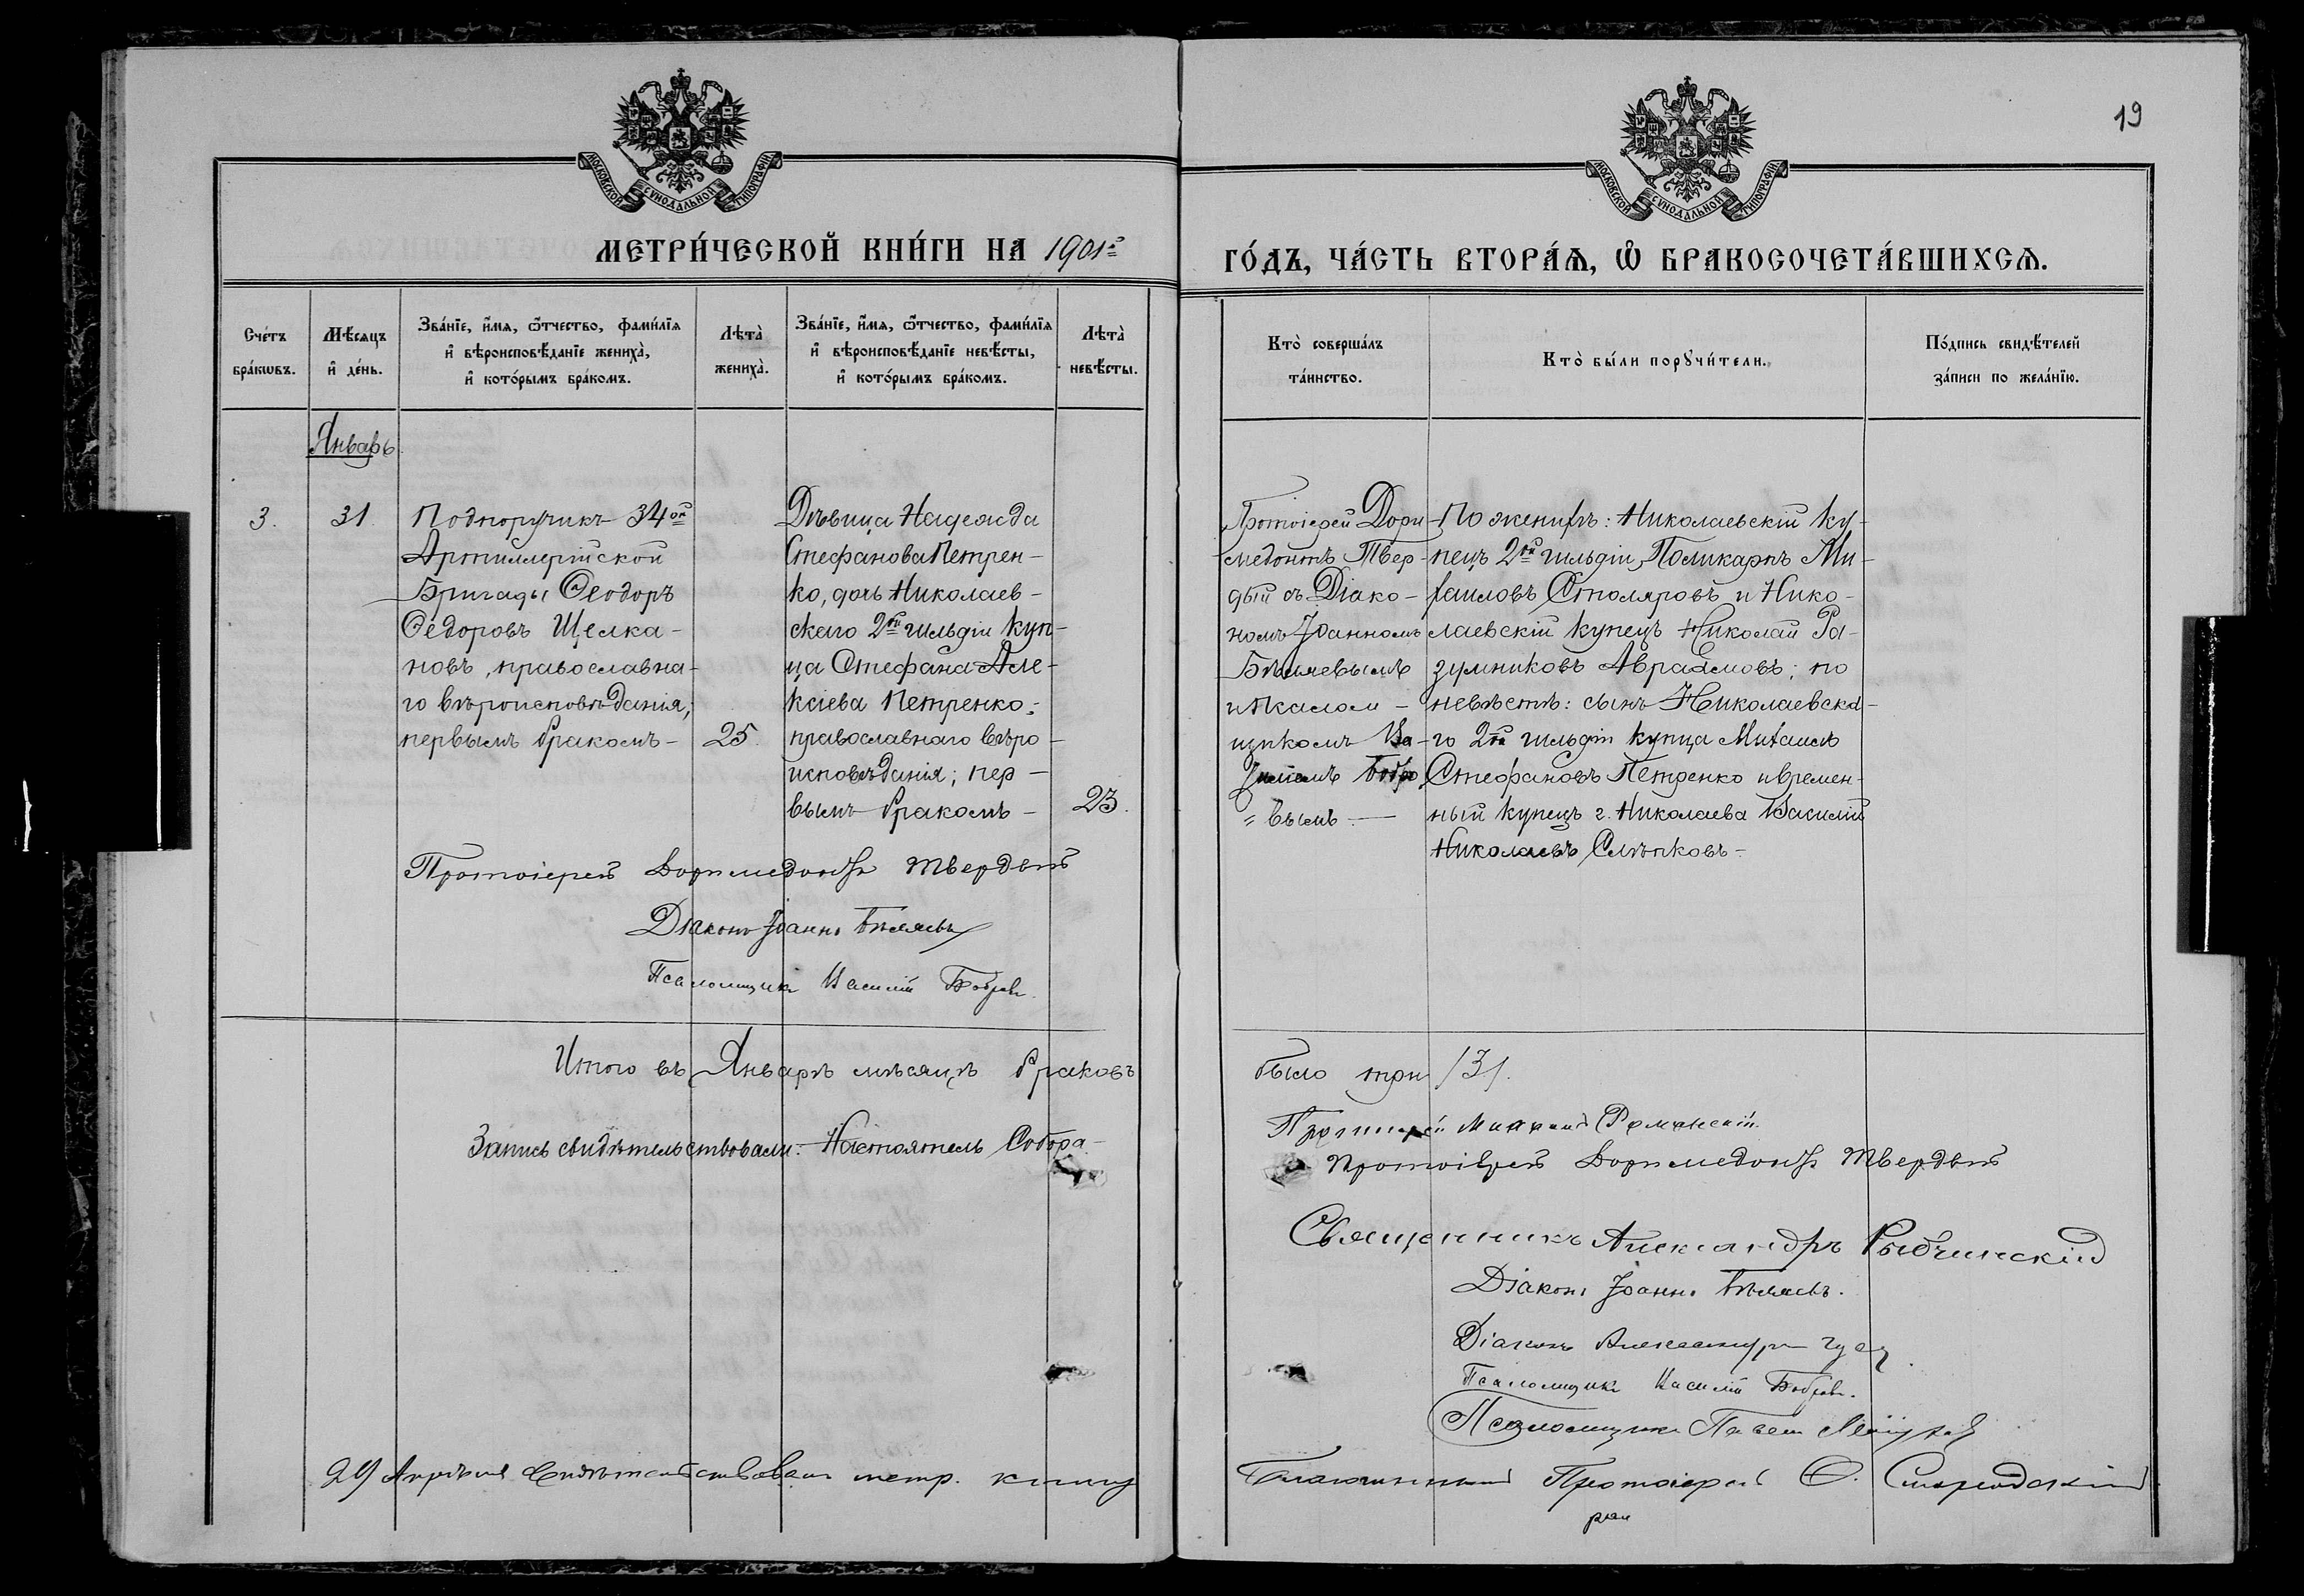 19
МОСКОВСКОЙ СѴНОДАЛЬНОЙ ТИПОГРАФІИ
МОСКОВСКОЙ СѴНОДАЛЬНОЙ ТИПОГРАФІИ
МЕТРИ́ЧЕСКОЙ КНИ́ГИ НА 1901й
ГО́ДЪ, ЧА́СТЬ ВТОРА́Ѧ, Ѡ҆ БРАКОСОЧЕТА́ВШИХСѦ.
Сче́тъ
бра́кѡвъ.
Мѣ́сяцъ
и҆ де́нь.
Зва́нїе, и҆́мѧ, ѻ҆́тчество, фами́лїѧ
и҆ вѣроисповѣ́данїе жениха̀,
и҆ кото́рымъ бра́комъ.
Лѣта̀
жениха̀.
Зва́нїе, и҆́мѧ, ѻ҆́тчество, фами́лїѧ
и҆ вѣроисповѣ́данїе невѣ́сты,
и҆ кото́рымъ бра́комъ.
Лѣта̀
невѣ́сты.
Кто̀ соверша́лъ
та́инство.
Кто̀ бы́ли порꙋчи́тели.
По́дпись свидѣ́телей
за́писи по жела́нїю.
Январь
3.
31.
Подпоручикъ 34ой
Артиллерійской
Бригады Ѳеодоръ
Ѳедоровъ Щелка-
новъ, православна-
го вѣроисповѣданія,
первымъ бракомъ-
25.
Дѣвица Надежда
Стефанова Петрен-
ко, дочь Николаев-
скаго 2ой гильдіи куп-
ца Стефана Але-
ксіева Петренко;
православнаго вѣро-
исповѣданія; пер-
вымъ бракомъ-
23.
Протоіерей Дори-
медонтъ Твер-
дый съ Діако-
номъ Іоанномъ
Бѣляевымъ
и Псалом-
щикомъ Ва-
силіемъ Бобро
=вымъ.-
По женихѣ: Николаевскій ку-
пецъ 2ой гильдіи, Поликарпъ Ми-
хаиловъ Столяровъ и Нико-
лаевскій купецъ Николай Ра-
зумниковъ Авраамовъ; по
невѣстѣ: сынъ Николаевска-
го 2ой гильдіи купца Михаилъ
Стефановъ Петренко и времен-
ный купецъ г. Николаева Василій
Николаевъ Слѣпковъ-
Протоіерей Доримедонтъ Твердый
Діаконъ Іоаннъ Бѣляевъ
Псаломщикъ Василій Бобровъ.
Итого въ Январѣ мѣсяцѣ браковъ
было три /3/.
Запись свидѣтельствовали: Настоятель Собора-
Протоіерей Михаилъ Романскій.
Протоіерей Доримедонтъ Твердый
Священникъ Александръ Рыбчинскій
Діаконъ Іоаннъ Бѣляевъ.
Діаконъ Александръ
Псаломщикъ Василій Бобровъ.
Псаломщикъ Павелъ
29 Апрѣля Свидѣтельствовалъ метр. книгу
Благочинный Протоіерей Ѳ.